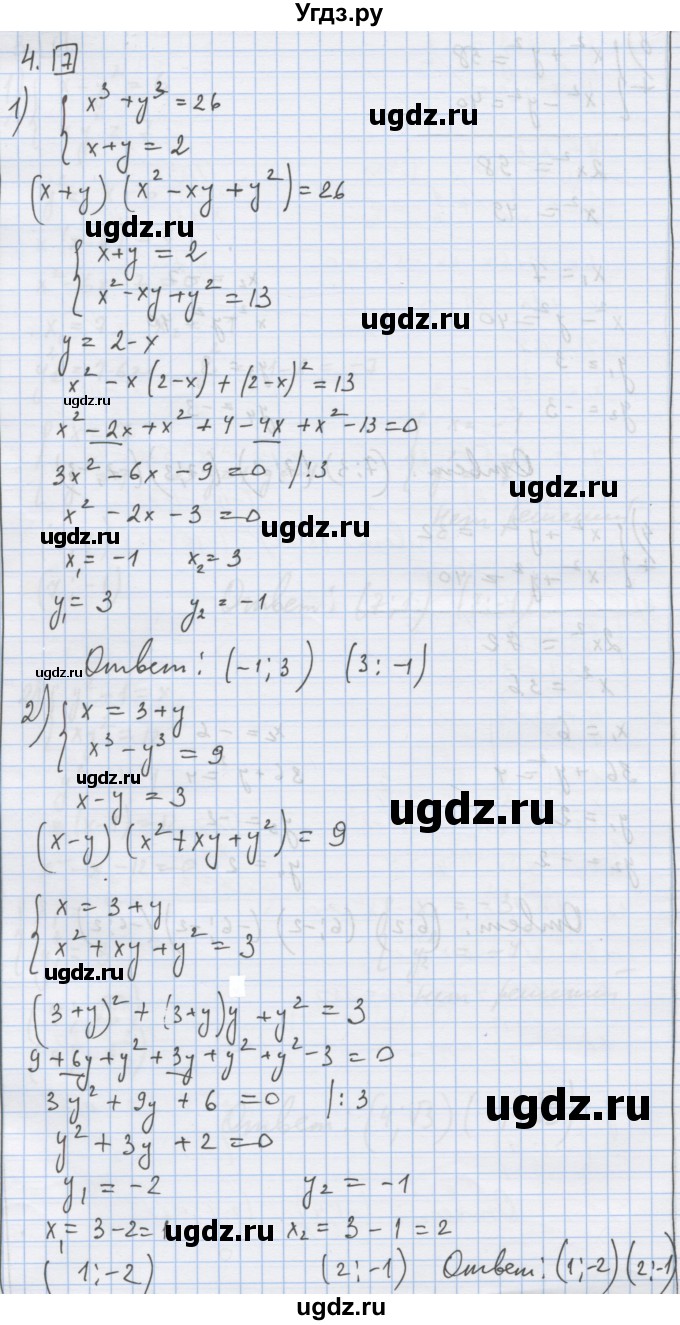 Угдз.ру
4. 7
1) { x³ + y³ = 26
x + y = 2
ugdz.ru
(x + y) (x² - xy + y²) = 26
ugdz.ru
{ x + y = 2
x² - xy + y² = 13
ugdz.ru
y = 2 - x
x² - x (2 - x) + (2 - x)² = 13
ugdz.ru
x² - 2x + x² + 4 - 4x + x² - 13 = 0
3x² - 6x - 9 = 0 /:3
ugdz.ru
x² - 2x - 3 = 0
ugdz.ru
ugdz.ru
x₁ = -1 x₂ = 3
y₁ = 3 y₂ = -1
ugdz.ru
Ответ: (-1; 3) (3; -1)
2) { x = 3 + y
x³ - y³ = 9
ugdz.ru
x - y = 3
ugdz.ru
(x - y) (x² + xy + y²) = 9
{ x = 3 + y
x² + xy + y² = 3
ugdz.ru
(3 + y)² + (3 + y)y + y² = 3
9 + 6y + y² + 3y + y² + y² - 3 = 0
3y² + 9y + 6 = 0 /:3
ugdz.ru
y² + 3y + 2 = 0
y₁ = -2 y₂ = -1
x₁ = 3 - 2 = ugdz.ru x₂ = 3 - 1 = 2
(1; -2) (2; -1) Ответ: (1; -2) (2; -1)
ugdz.ru